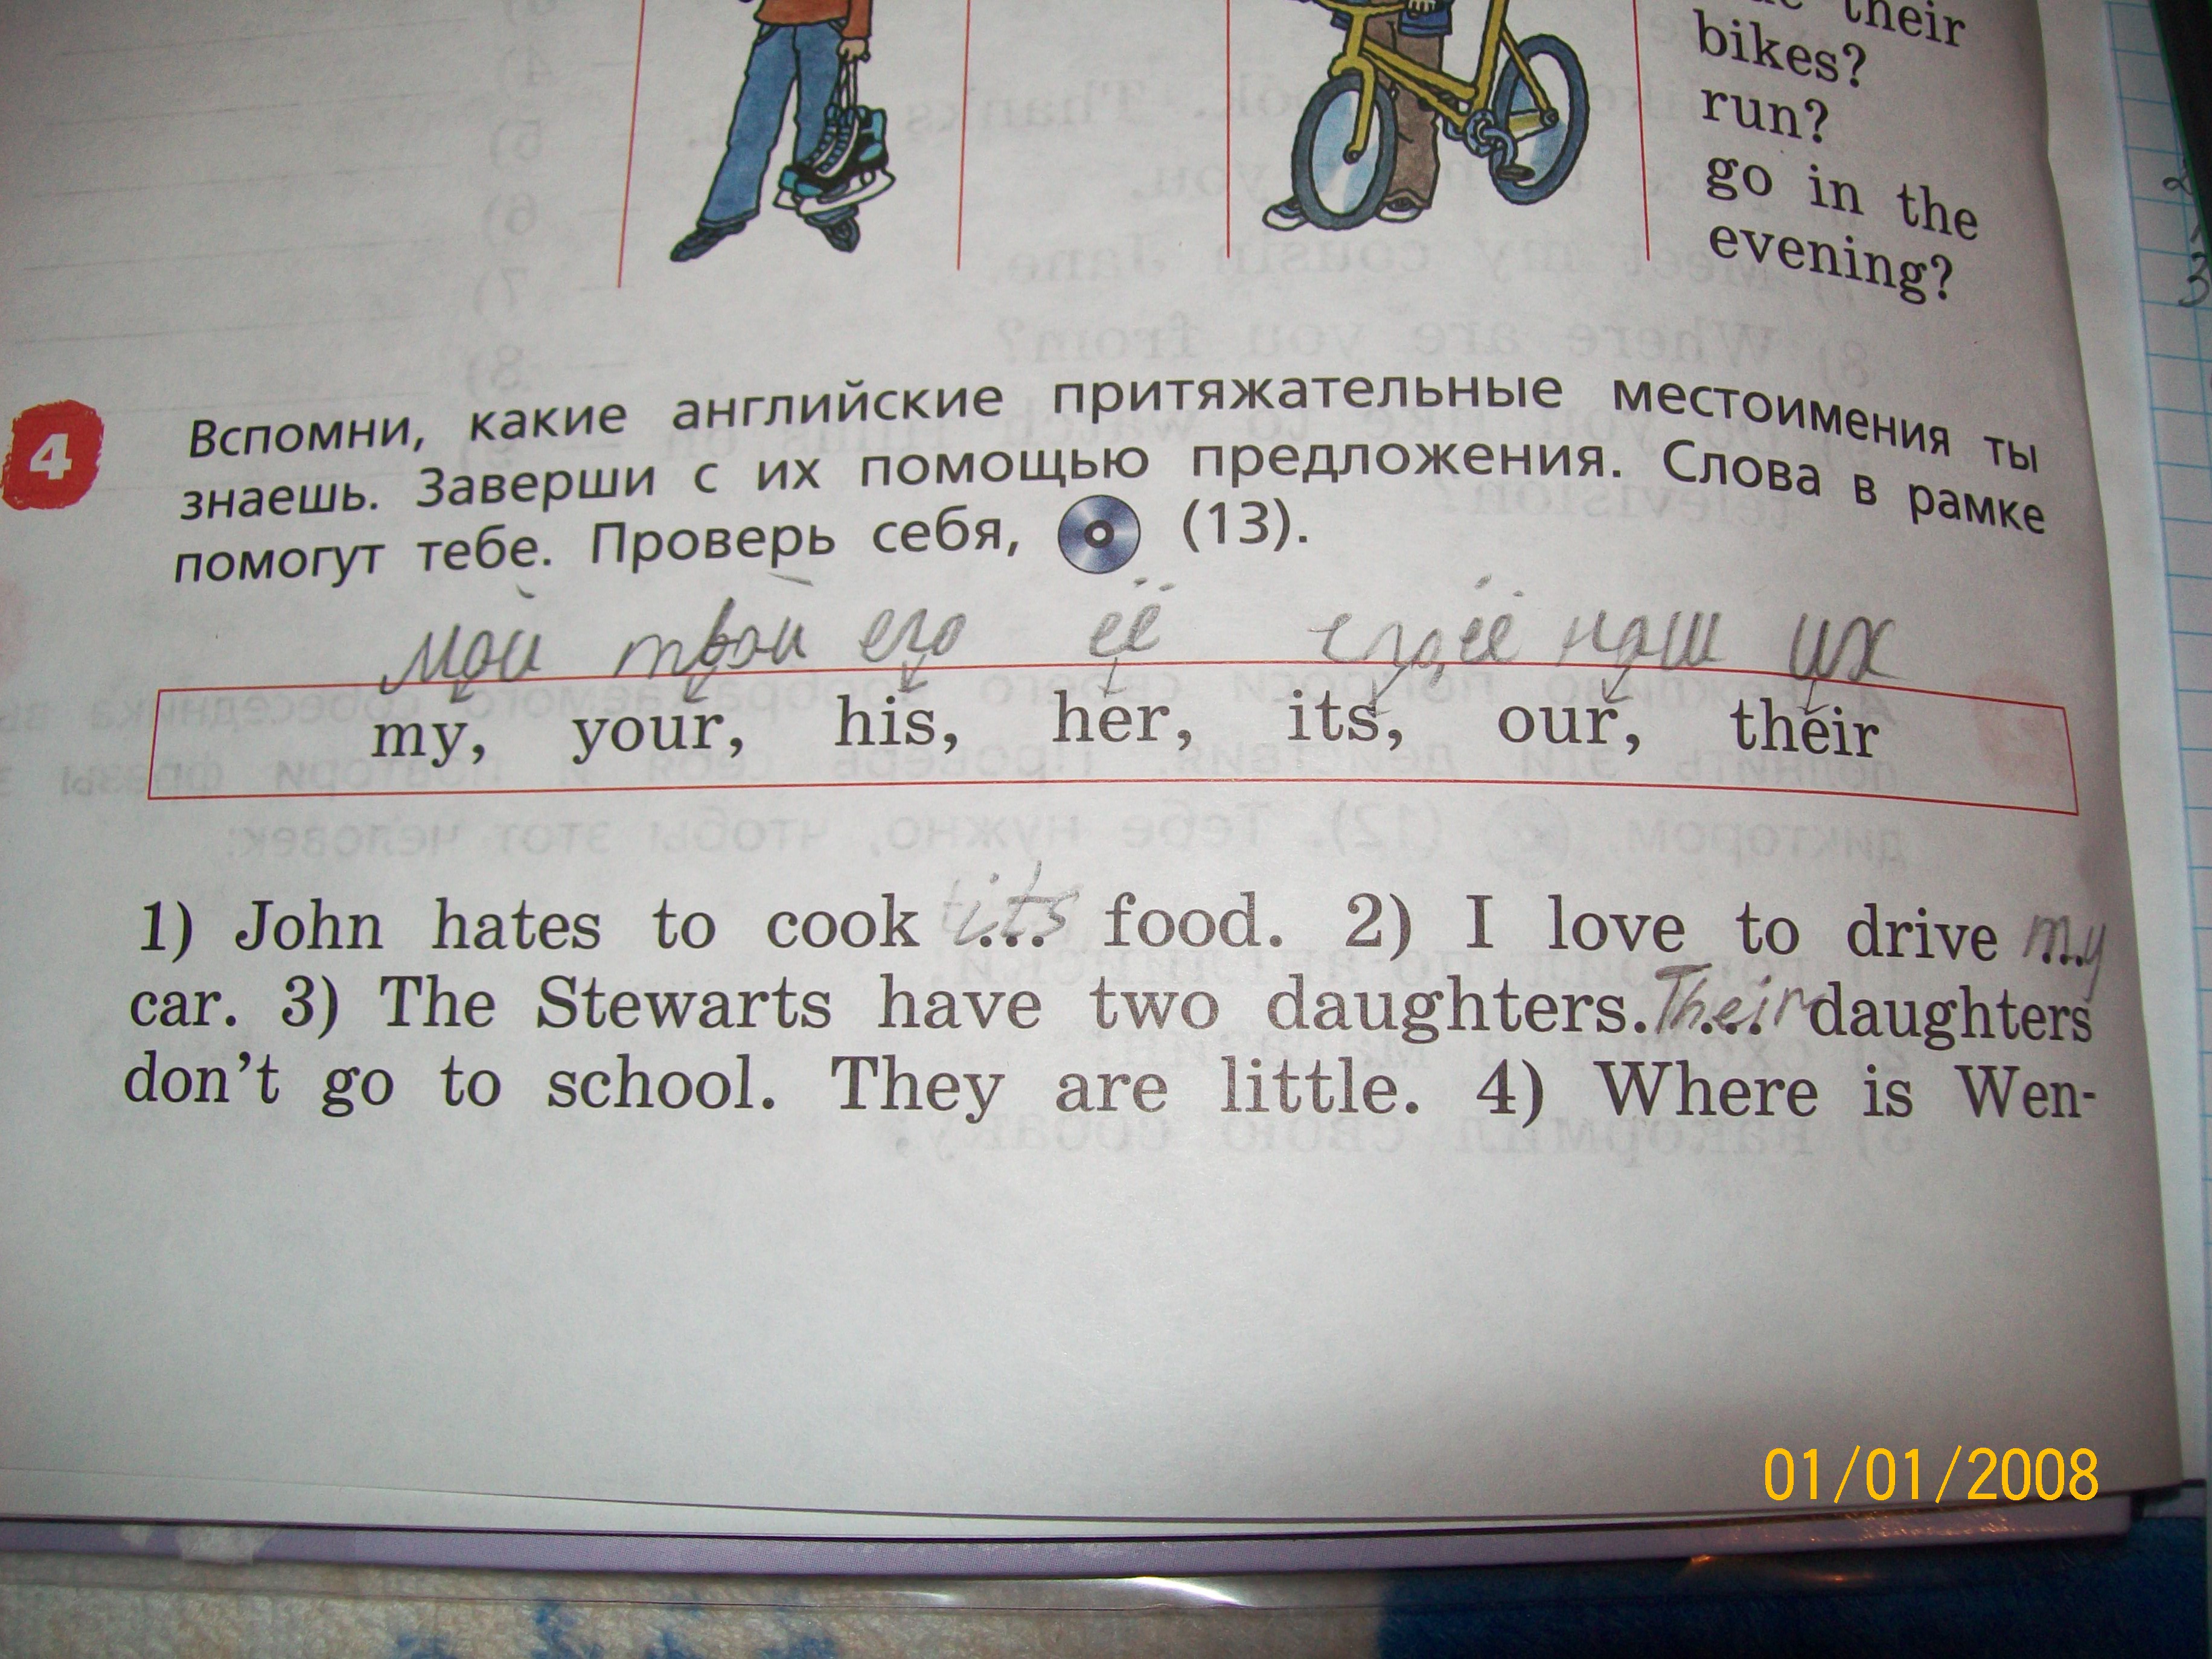 their
bikes?
run?
go in the
evening?
4
Вспомни, какие английские притяжательные местоимения ты
знаешь. Заверши с их помощью предложения. Слова в рамке
помогут тебе. Проверь себя, (13).
мой твой его её его,её наш их
my, your, his, her, its, our, their
1) John hates to cook its ... food. 2) I love to drive my
car. 3) The Stewarts have two daughters. Their daughters
don't go to school. They are little. 4) Where is Wen-
01/01/2008